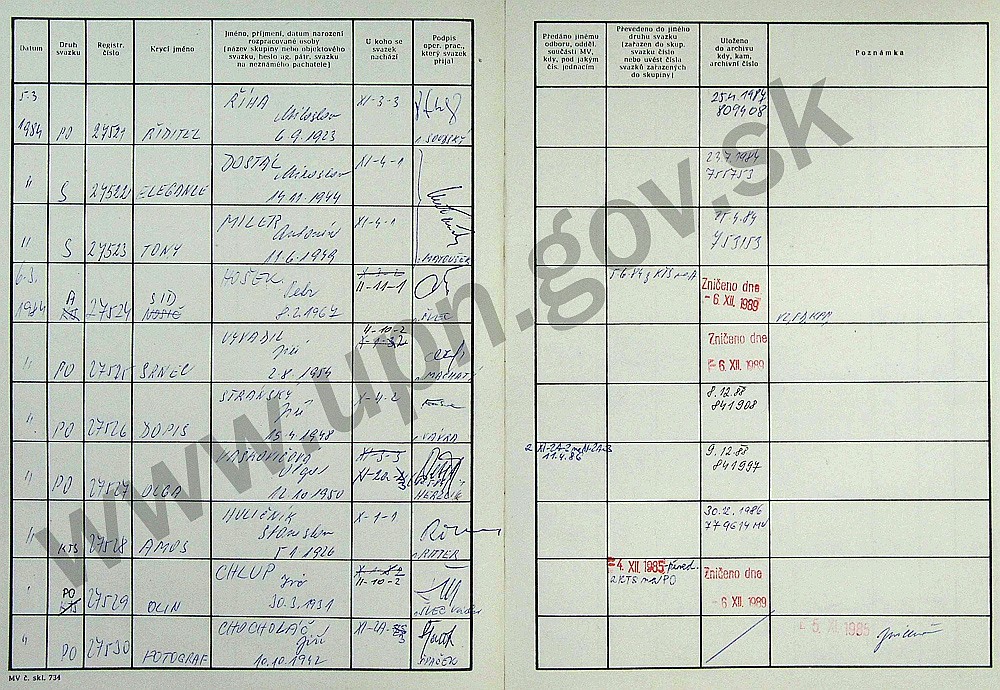 Datum
Druh
svazku
Registr.
číslo
Krycí jméno
Jméno, příjmení, datum narození
rozpracované osoby
(název skupiny nebo objektového
svazku, heslo ag. pátr. svazku
na neznámého pachatele)
U koho se
svazek
nachází
Podpis
oper. prac.,
který svazek
přijal
Předáno jinému
odboru, odděl.
součásti MV,
kdy, pod jakým
čís. jednacím
Převedeno do jiného
druhu svazku
(zařazen do skup.
svazku číslo
nebo uvést čísla
svazků zařazených
do skupiny)
Uloženo
do archivu
kdy, kam,
archivní číslo
Poznámka
5.3.
1984 PO 27521 ŘIDITEL
ŘÍHA
Miloslav
6.9.1923
XI-3-3
25.4.1984
809408
" S 27522 ELEGANCE
DOSTÁL
Miloslav
14.11.1944
XI-4-1
23.7.1984
755753
" S 27523 TONY
MILLER
Antonín
11.6.1949
XI-4-1
MATOUŠEK
25.4.84
753153
6.3.
1984 A 27524 SID
HOŠEK
Petr
8.2.1967
II-11-1
ŠVEC
Zničeno dne
- 6. XII. 1989
" PO 27525 SRNEC
VYVADIL
Jiří
2.8.1954
II-10-2
MACHATÝ
Zničeno dne
- 6. XII. 1989
" PO 27526 DOPIS
STRÁNSKÝ
Jiří
15.4.1948
X-4-2
VÁVRA
8.12.88
841908
" PO 27527 OLGA
Olga
12.10.1950
XI-5-3
11.4.86
9.12.88
841997
" KTS 27528 AMOS
HULIČNÍK
Stanislav
5.1.1926
X-1-1
RITTER
30.12.1986
779614 MV
" PO 27529 OLIN
KTS
CHLUP
Jiří
30.3.1931
II-10-2
ŠVEC
- 4. XII. 1985 převed.
z KTS na PO
Zničeno dne
- 6. XII. 1989
" PO 27530 FOTOGRAF
CHOCHOLÁČ
Jiří
10.10.1942
SPAČEK
5. XI. 1985
MV č. skl. 734
www.upn.gov.sk